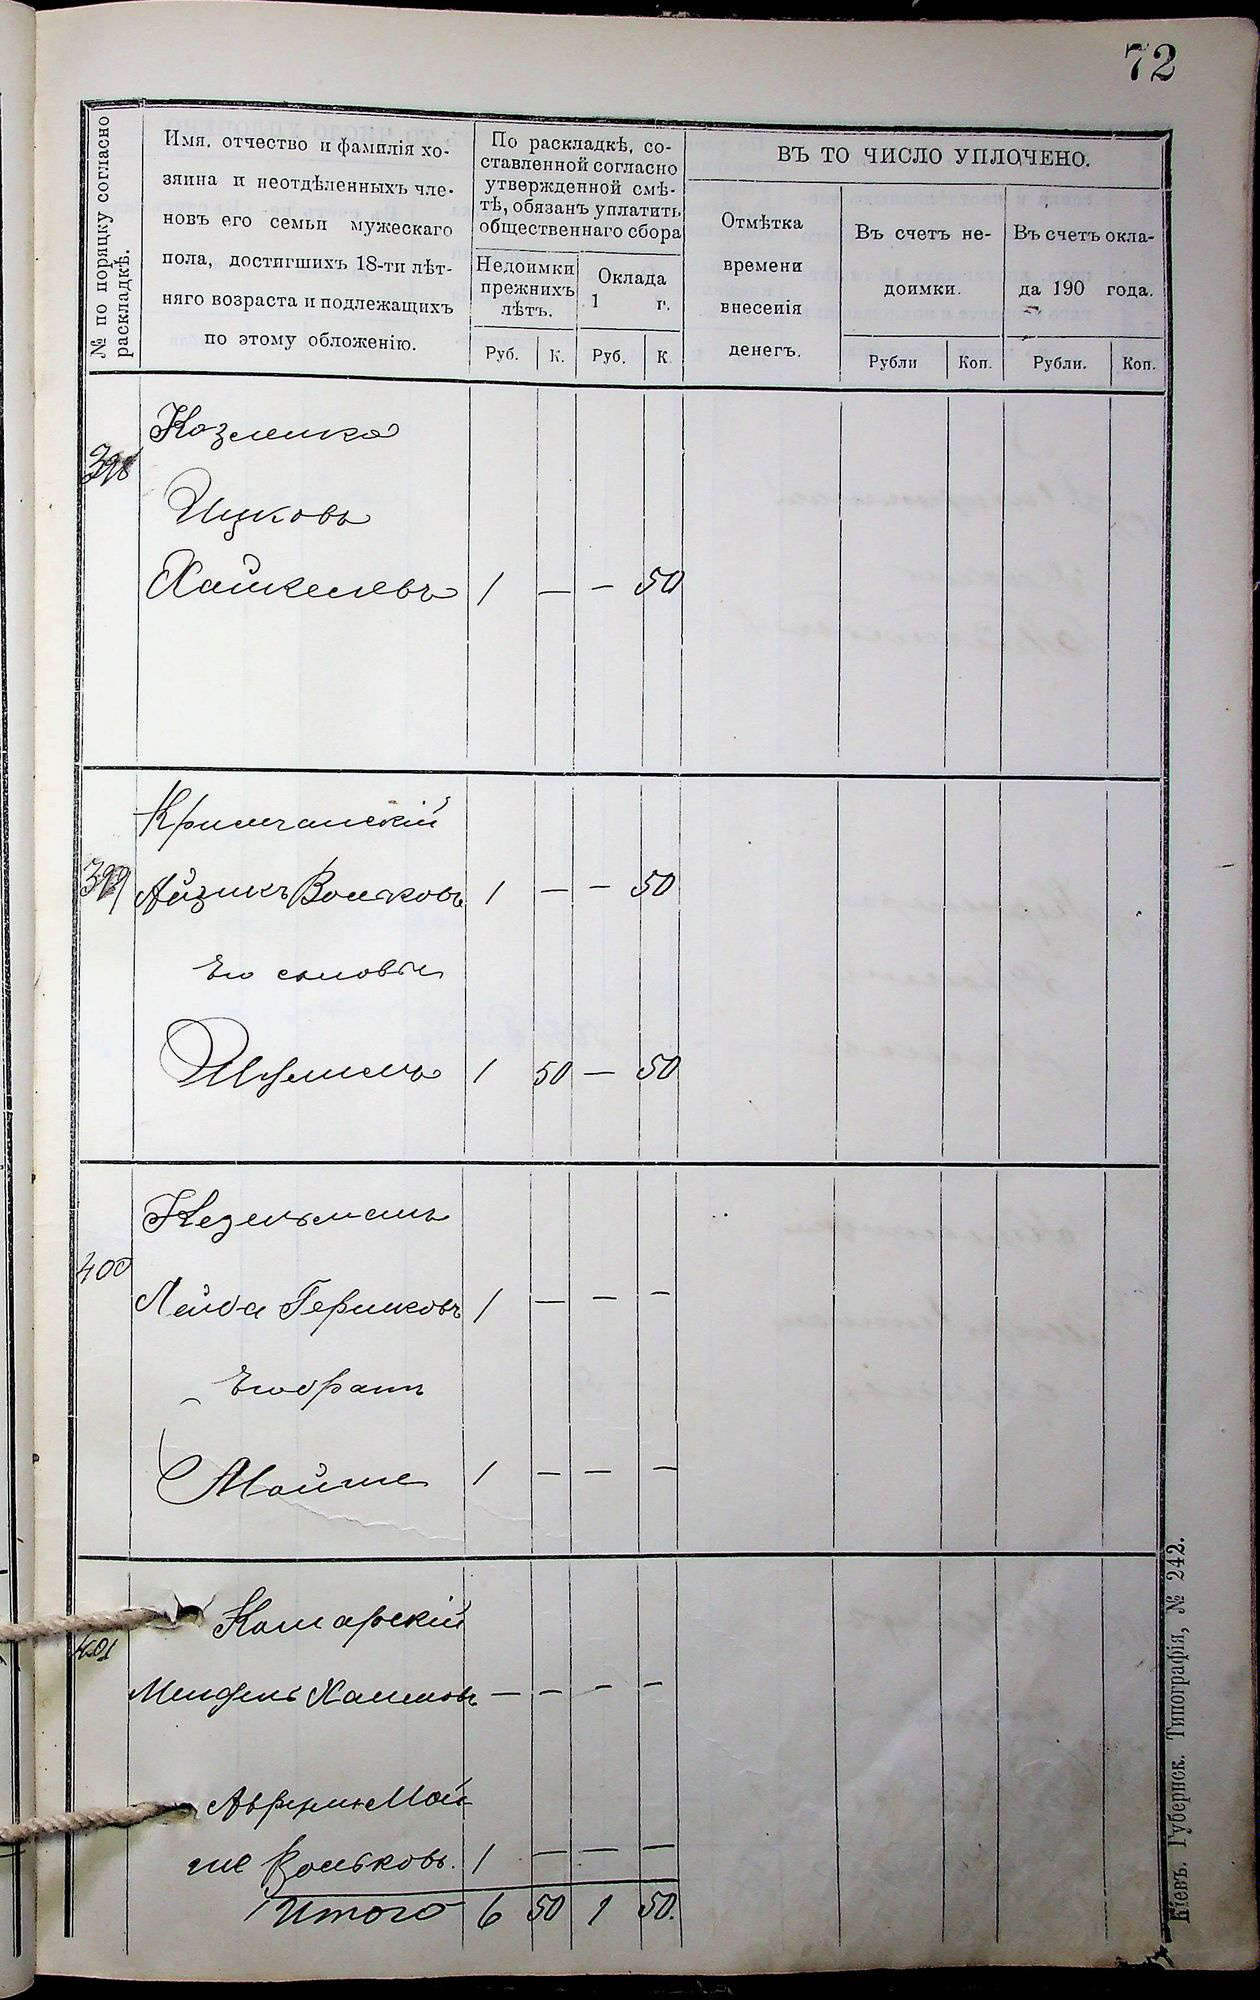 72
№ по порядку согласно
раскладкѣ.
Имя, отчество и фамилія хо-
зяина и неотдѣленныхъ чле-
новъ его семьи мужескаго
пола, достигшихъ 18-ти лѣт-
няго возраста и подлежащихъ
по этому обложенію.
По раскладкѣ, со-
ставленной согласно
утвержденной смѣ-
тѣ, обязанъ уплатить
общественнаго сбора
Недоимки
прежнихъ
лѣтъ.
Оклада
1 г.
Руб. К. Руб. К
ВЪ ТО ЧИСЛО УПЛОЧЕНО.
Отмѣтка
времени
внесенія
денегъ.
Въ счетъ не-
доимки.
Въ счетъ окла-
да 190 года.
Рубли Коп. Рубли. Коп.
Козленко
398
Ицковъ
Хайкелевъ 1 — — 50
Кримчанскій
399 Айзикъ Вольковъ 1 — — 50
Его сыновья
1 50 — 50
Кезельманъ
400
Лейба Гершковъ 1 — — —
Его братъ
Мойше 1 — — —
Комарскій
401
Мендель Хаимовъ — — — —
Аврумъ Мой
ше Вольковъ. 1 — — —
Итого 6 50 1 50.
Кіевъ. Губернск. Типографія, № 242.